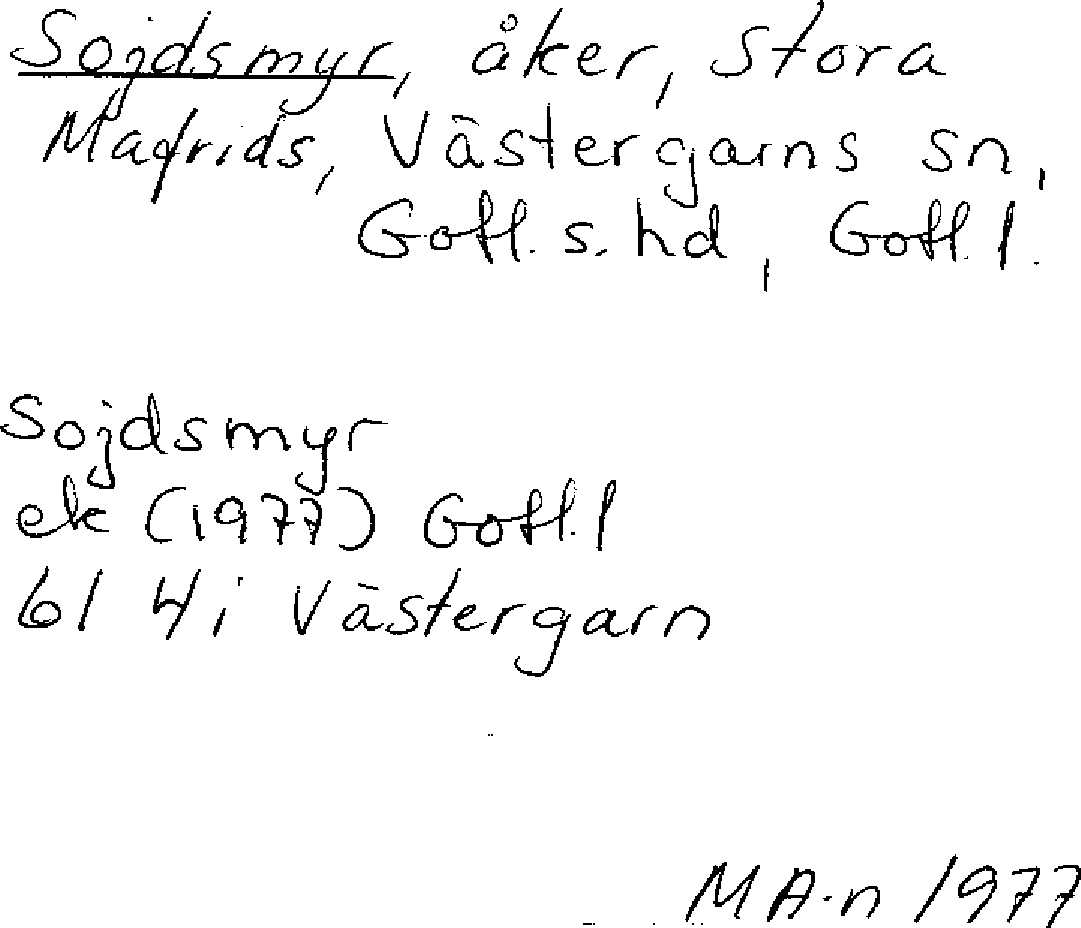 Sojdsmyr, åker, Stora
Mafrids, Västergarns sn,
Gotl. s. hd, Gotl. l.
Sojdsmyr
ek (1977) Gotl. l
6I 4i Västergarn
MA-n 1977